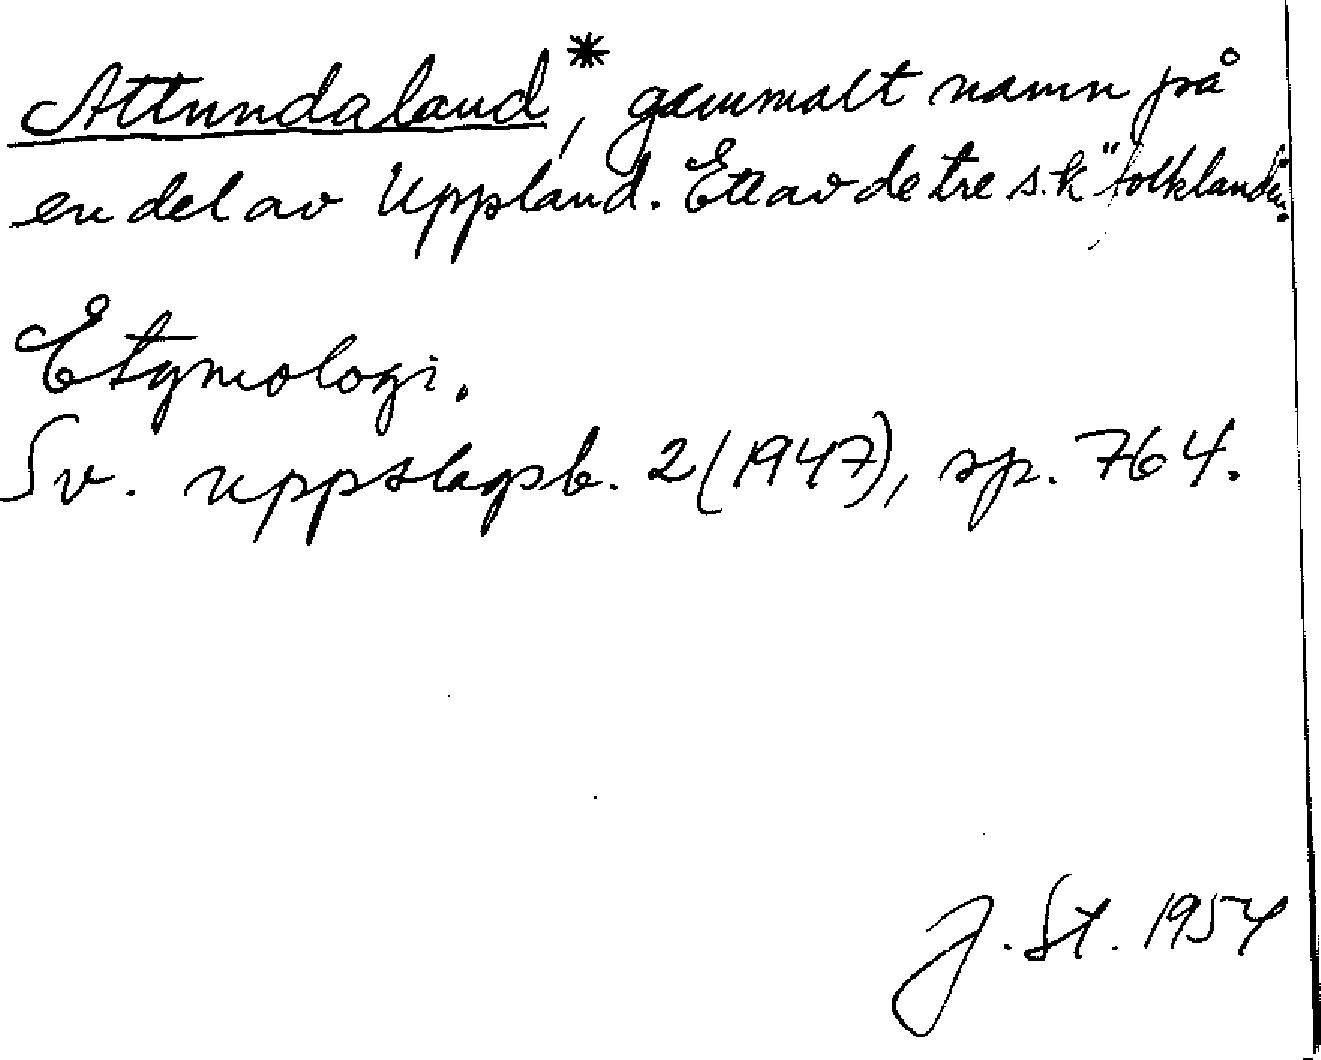 Attundaland*, gammalt namn på
en del av Uppland. Ett av de tre s.k "folklanden".
Etymologi.
Sv. uppslagsb. 2(1947), sp. 764.
J. St. 1954